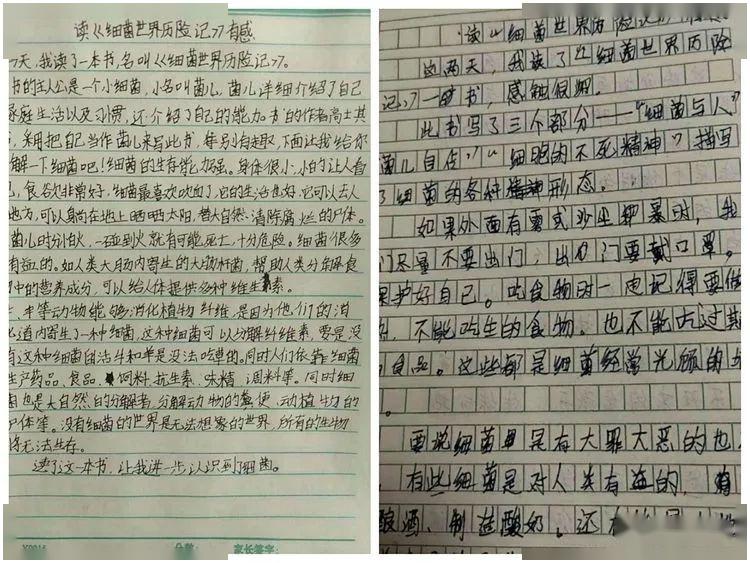 读《细菌世界历险记》有感
天,我读了一本书,名叫《细菌世界历险记》。
书的主人公是一个小细菌,小名叫菌儿。菌儿详细介绍了自己
家庭生活以及习惯,还介绍了自己的能力。书的作者高士其
,采用把自己当作菌儿来写此书,特别有趣,下面让我给你
解一下细菌吧!细菌的生存能力强。身体很小,小的让人看
,食谷欠非常好,细菌最喜欢吃血了,它的生活也好,它可以去人
地方,可以躺在地上晒晒太阳,替大自然清除腐烂的尸体。
菌儿十分怕火,一碰到火就有可能死亡,十分危险。细菌很多
有益的。如人类大肠内寄生的大肠杆菌,帮助人类分解食
中的营养成分,可以给人体提供多种维生素。
羊等动物能够消化植物纤维,是因为他们的消
化道内寄生了一种细菌,这种细菌可以分解纤维素,要是没
有这种细菌的话牛和羊是没法吃草的。同时人们依靠细菌
生产药品、食品、饲料、抗生素、味精、调料等。同时细
菌也是大自然的分解者,分解动物的粪便、动植物的
尸体等。没有细菌的世界是无法想象的世界,所有的生物
将无法生存。
读了这一本书,让我进一步认识到了细菌。
家长签字:
读《细菌世界历险记》
这两天,我读了《细菌世界历险
记》一书,感触很深。
此书写了三个部分——“细菌与人”
菌儿自传”“细胞的不死精神”描写
了细菌的各种形态。
如果外面有雾或沙尘都暴时,我
们尽量不要出门,出门要戴口罩,
保护好自己。吃食物时一定记得要
,不能吃生的食物。也不能吃过期
食品。这些都是细菌经常光顾的
。
要说细菌是有大罪大恶的也
有些细菌是对人类有益的,
酿酒、制造酸奶。还